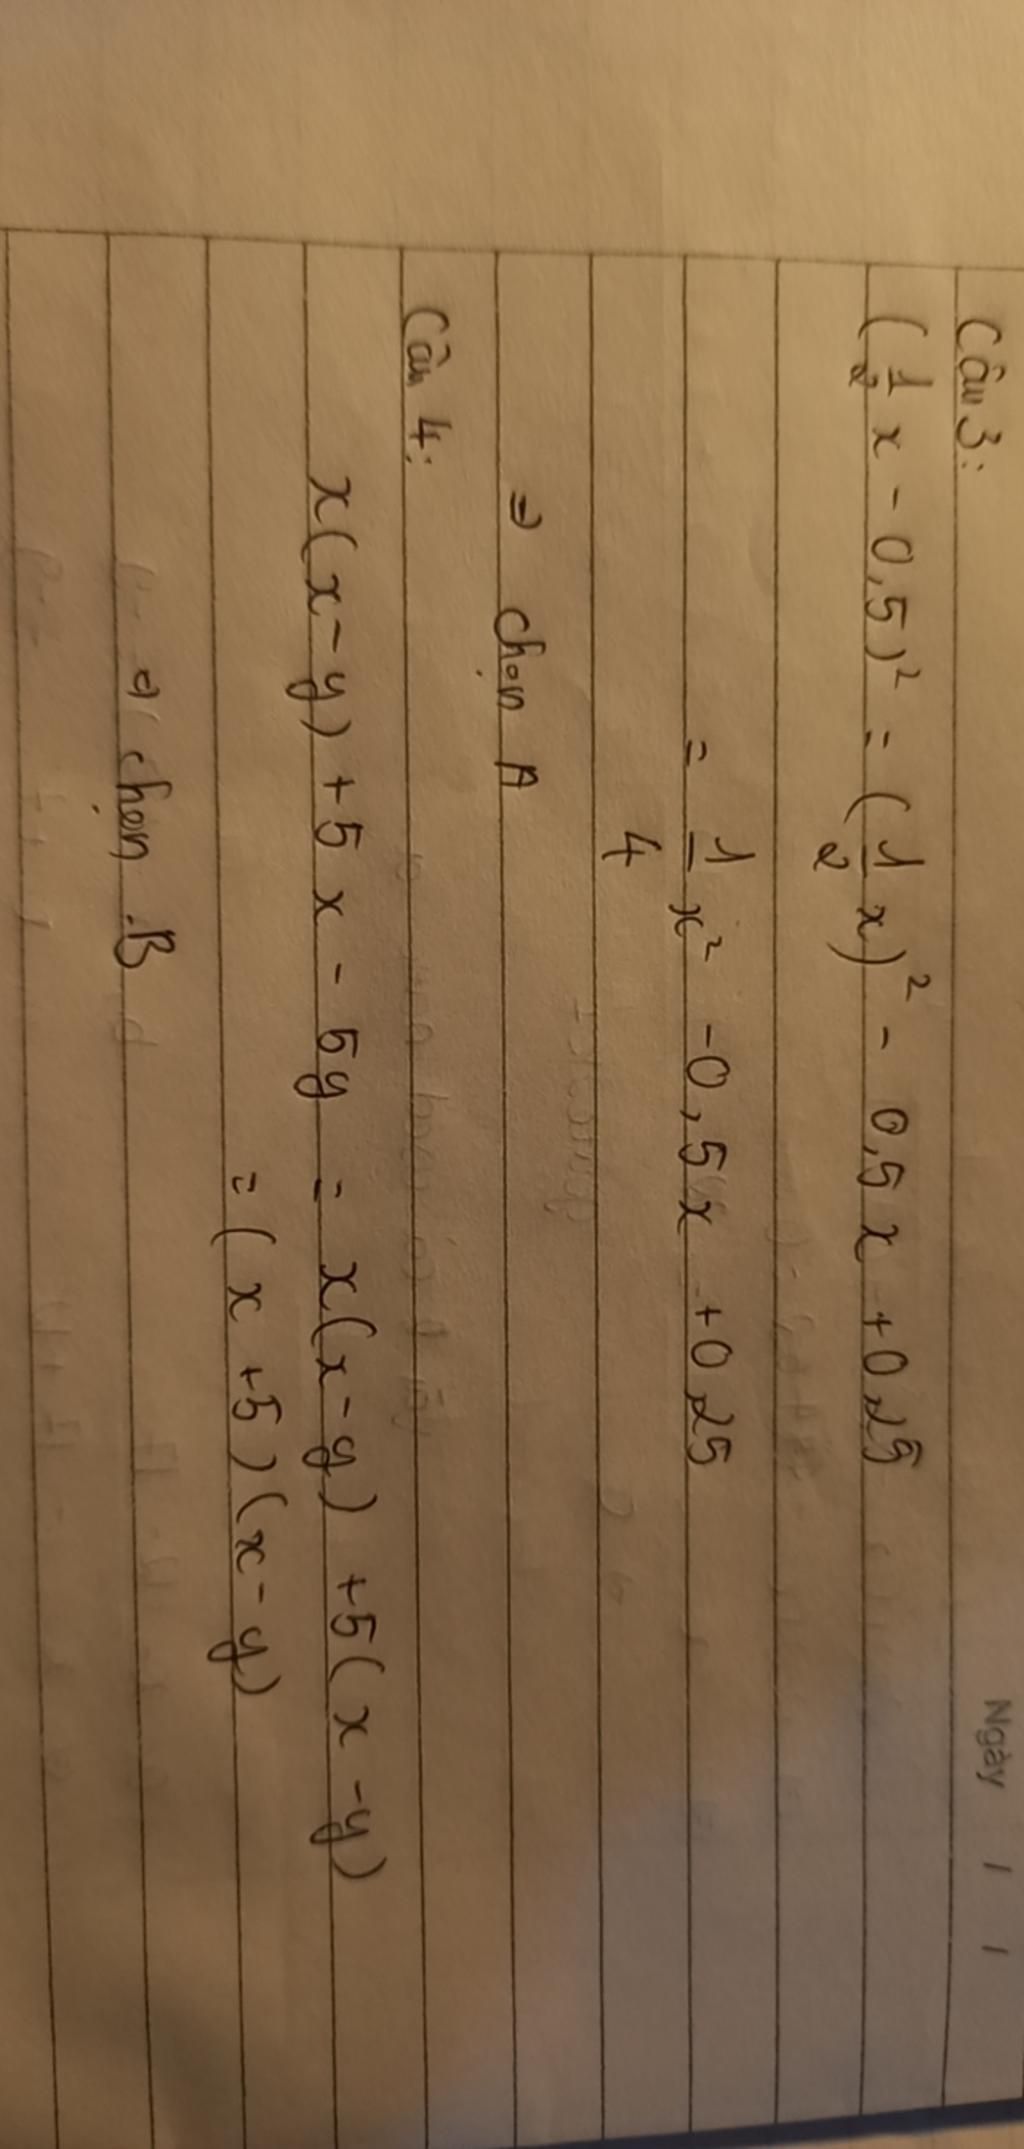 Ngày / /
Câu 3:
(1/2 x - 0,5)² = (1/2 x)² - 0,5 x + 0,25
= 1/4 x² - 0,5x + 0,25
⇒ chọn A
Câu 4:
x(x-y) + 5x - 5y = x(x-y) + 5(x-y)
= (x+5)(x-y)
⇒ chọn B